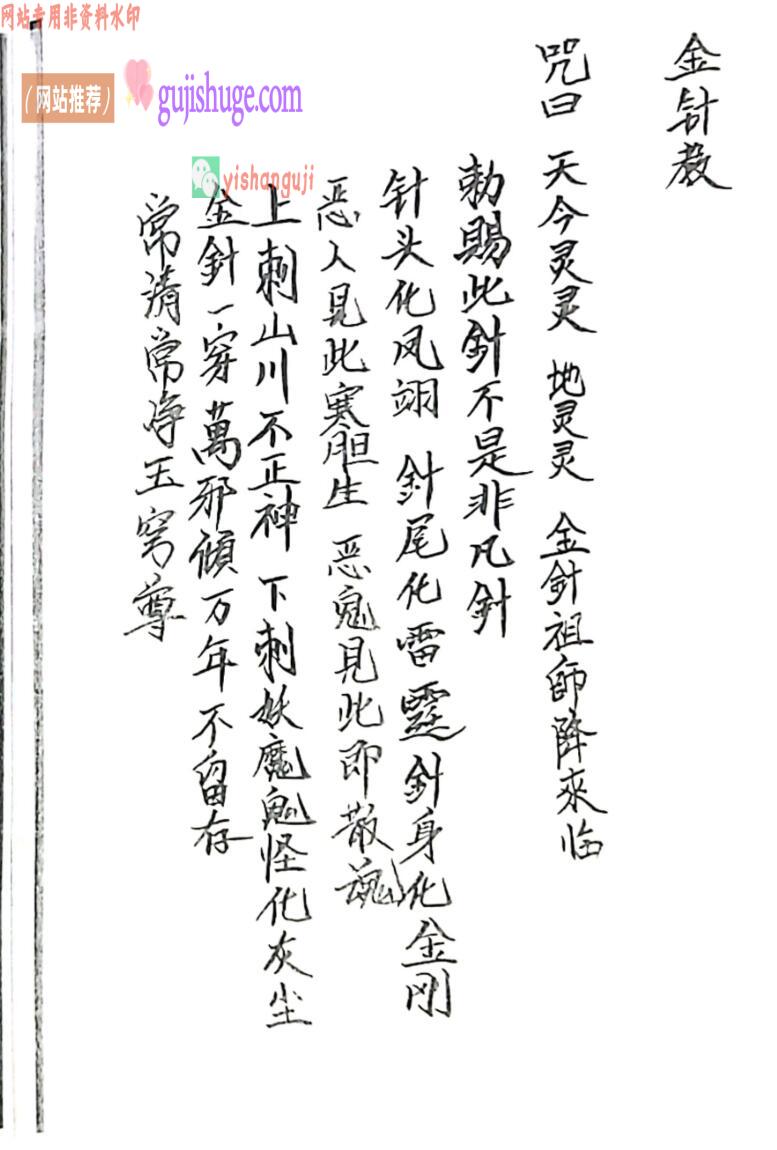 网站专用非资料水印
（网站推荐）
gujishuge.com
yishanguji
金针教
咒曰 天今灵灵 地灵灵 金針祖師降來临
勅賜此針不是非凡針
针头化凤翊 針尾化雷霆針身化金刚
恶人見此寒胆生 恶鬼見此即散魂
上刺山川不正神 下刺妖魔鬼怪化灰尘
金針一穿萬邪傾万年不留存
常清常净玉穹尊